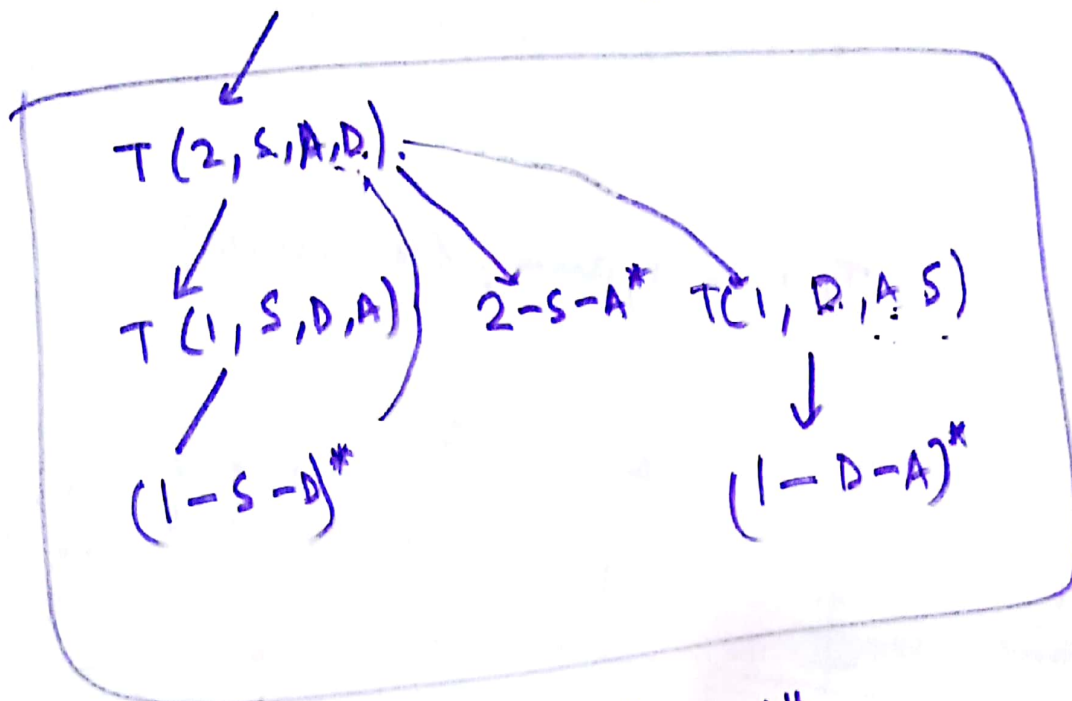 T(2, S, A, D)
T(1, S, D, A) 2-S-A* T(1, D, A S)
(1-S-D)* (1-D-A)*